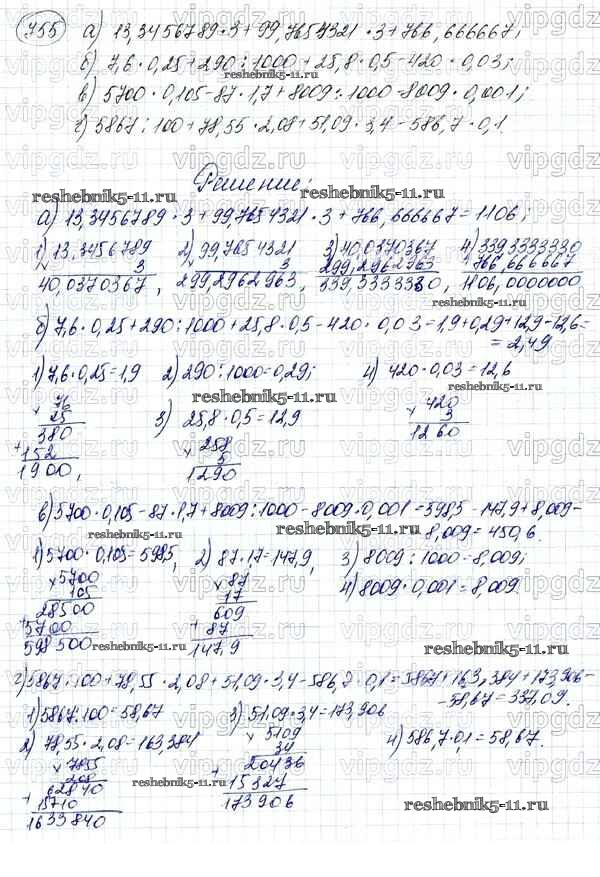 755 а) 13,3456789 · 3 + 99,7654321 · 3 + 766,666667;
б) 7,6 · 0,25 + 290 : 1000 + 25,8 · 0,5 - 420 · 0,03;
в) 5700 · 0,105 - 87 · 1,7 + 8009 : 1000 - 8009 · 0,001;
г) 5867 : 100 + 78,55 · 2,08 + 51,09 · 3,4 - 586,7 · 0,1.
Решение:
reshebnik5-11.ru reshebnik5-11.ru
а) 13,3456789 · 3 + 99,7654321 · 3 + 766,666667 = 1106;
1) 13,3456789 2) 99,7654321 3) 40,0370367 4) 339,3333330
× 3 × 3 299,2962963 + 766,666667
40,0370367, 299,2962963, 339,3333330, 1106,0000000
reshebnik5-11.ru
б) 7,6 · 0,25 + 290 : 1000 + 25,8 · 0,5 - 420 · 0,03 = 1,9 + 0,29 + 12,9 - 12,6 =
= 2,49
1) 7,6 · 0,25 = 1,9 2) 290 : 1000 = 0,29; 4) 420 · 0,03 = 12,6
reshebnik5-11.ru
× 76 3) 25,8 · 0,5 = 12,9 × 420
25 × 258 3
380 5 1260
+ 152 1290
1900,
в) 5700 · 0,105 - 87 · 1,7 + 8009 : 1000 - 8009 · 0,001 = 598,5 - 147,9 + 8,009 -
reshebnik5-11.ru reshebnik5-11.ru
- 8,009 = 450,6.
1) 5700 · 0,105 = 598,5 2) 87 · 1,7 = 147,9, 3) 8009 : 1000 = 8,009;
× 5700 × 87 4) 8009 · 0,001 = 8,009.
105 17
28500 609
+ 5700 + 87
598500 147,9
reshebnik5-11.ru reshebnik5-11.ru
г) 5867 : 100 + 78,55 · 2,08 + 51,09 · 3,4 - 586,7 · 0,1 = 58,67 + 163,384 + 173,906 -
- 58,67 = 337,09.
1) 5867 : 100 = 58,67 3) 51,09 · 3,4 = 173,906
2) 78,55 · 2,08 = 163,384 × 5109 4) 586,7 · 0,1 = 58,67.
× 7855 34
208 20436
62840 + 15327
+ 15710 173906
1633840
reshebnik5-11.ru
reshebnik5-11.ru
vipgdz.ru